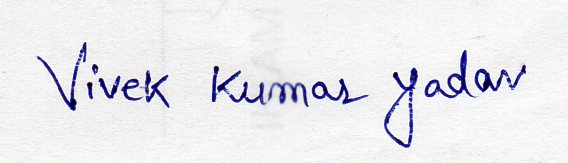 Vivek Kumar Yadav